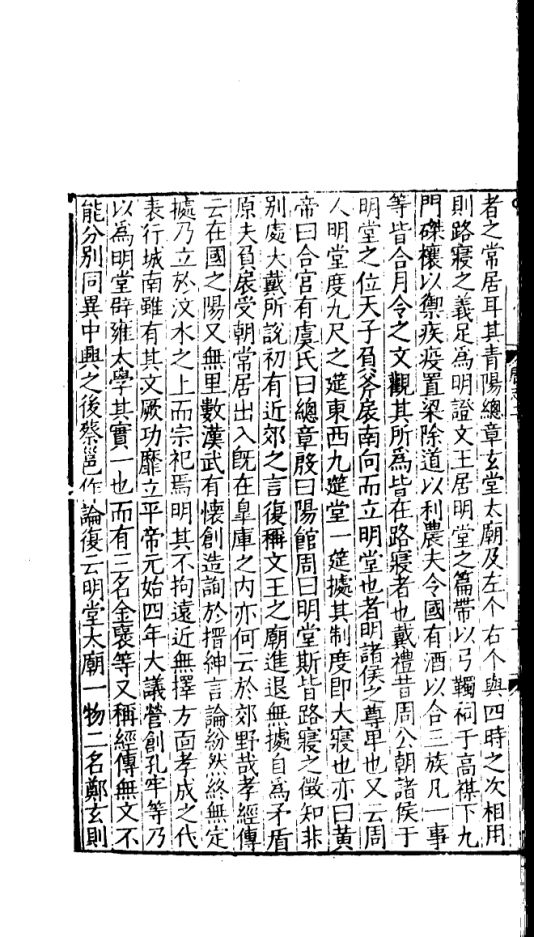 者之常居耳其青陽總章玄堂太廟及左个右个與四時之次相用
則路寢之義足為明證文王居明堂之篇帶以弓韣祠于高禖下九
門磔禳以禦疾疫置梁除道以利農夫令國有酒以合三族凡一事
等皆合月令之文觀其所為皆在路寢者也戴禮昔周公朝諸侯于
明堂之位天子負斧扆南向而立明堂也者明諸侯之尊卑也又云周
人明堂度九尺之筵東西九筵堂一筵據其制度即大寢也亦曰黃
帝曰合宮有虞氏曰總章殷曰陽館周曰明堂斯皆路寢之徵知非
別處大戴所說初有近郊之言復稱文王之廟進退無據自為矛盾
原夫負扆受朝常居出入既在皐庫之內亦何云於郊野哉孝經傳
云在國之陽又無里數漢武有懷創造詢於搢紳言論紛然終無定
據乃立於汶水之上而宗祀焉明其不拘遠近無擇方面孝成之代
表行城南雖有其文厥功靡立平帝元始四年大議營創孔牢等乃
以為明堂辟雍太學其實一也而有三名金褒等又稱經傳無文不
能分別同異中興之後蔡邕作論復云明堂太廟一物二名鄭玄則